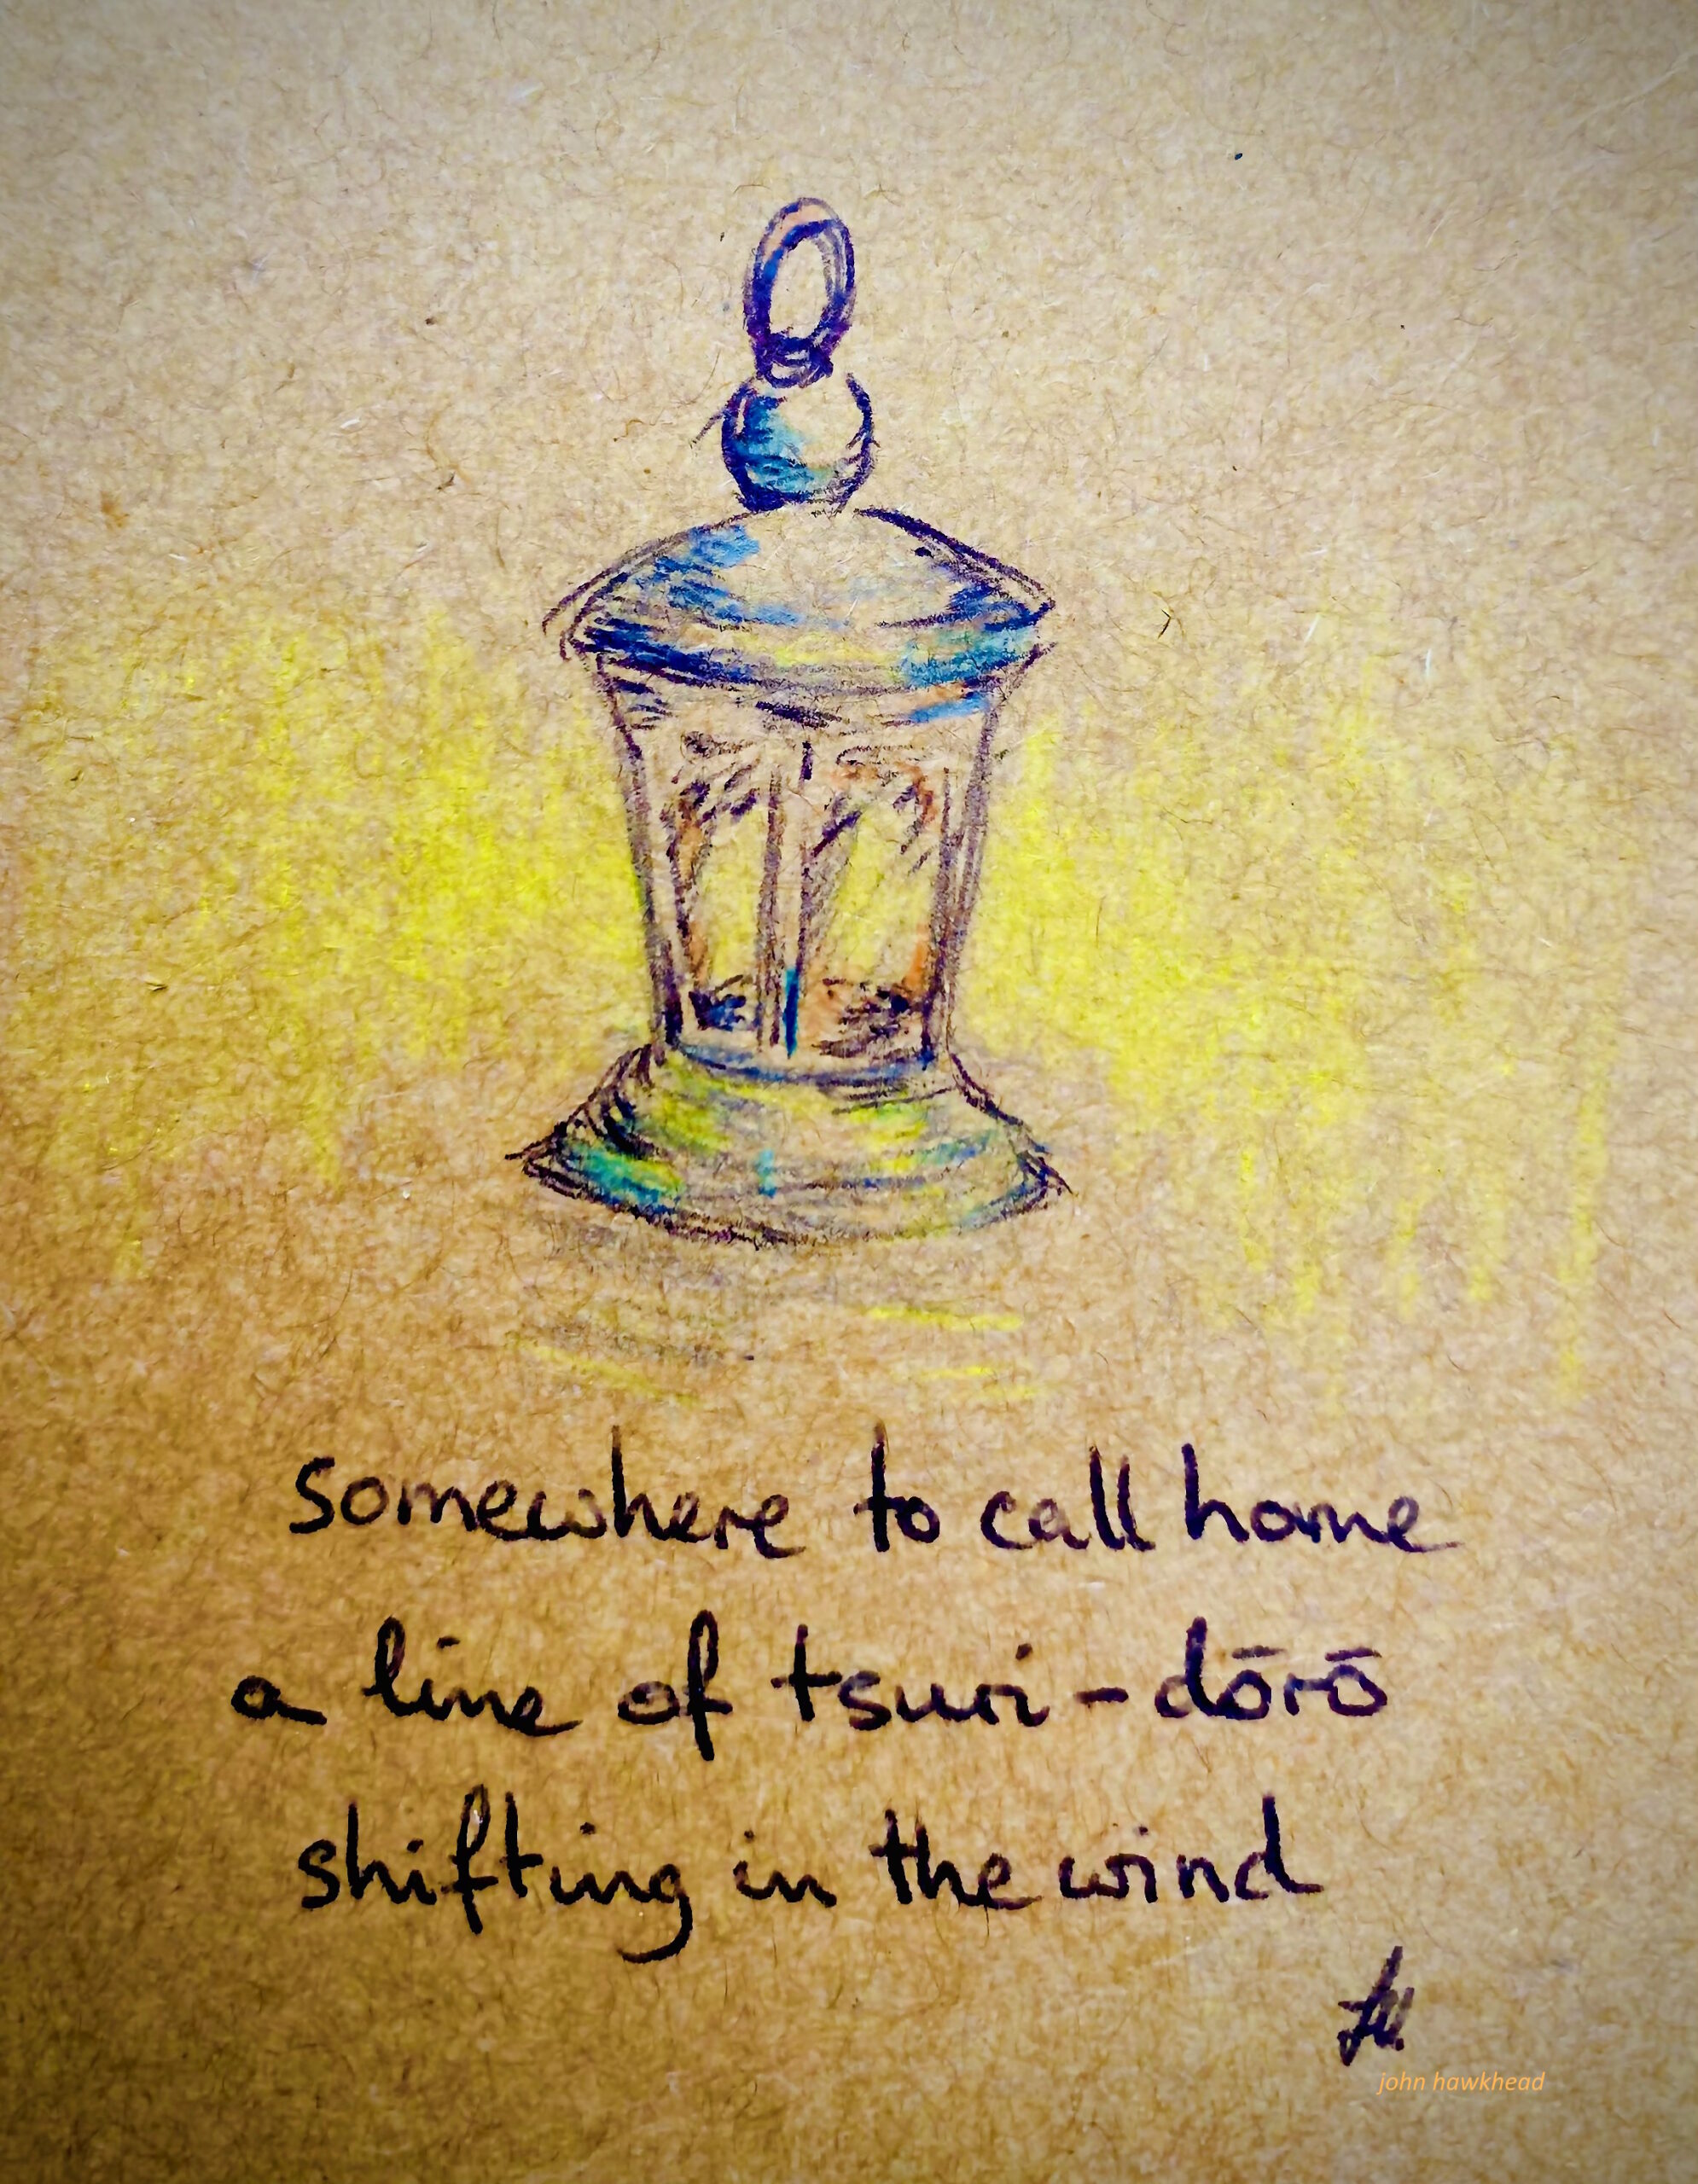 somewhere to call home
a line of tsuri-dōrō
shifting in the wind
john hawkhead